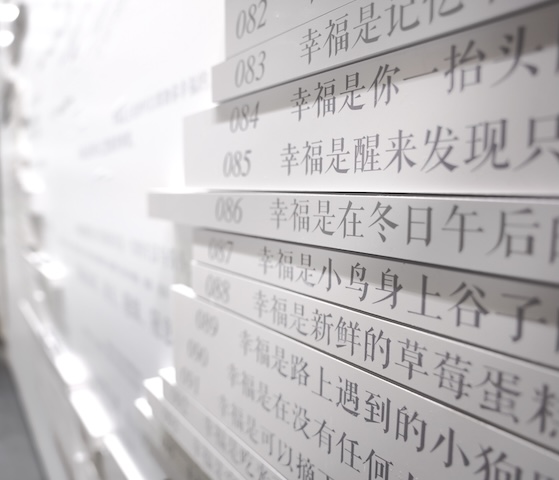 082
083 幸福是记忆
084 幸福是你一抬头
085 幸福是醒来发现只
086 幸福是在冬日午后的
087 幸福是小鸟身上谷子的
088 幸福是新鲜的草莓蛋糕
089 幸福是路上遇到的小狗
090 幸福是在没有任何
091 幸福是可以摘
幸福是吃